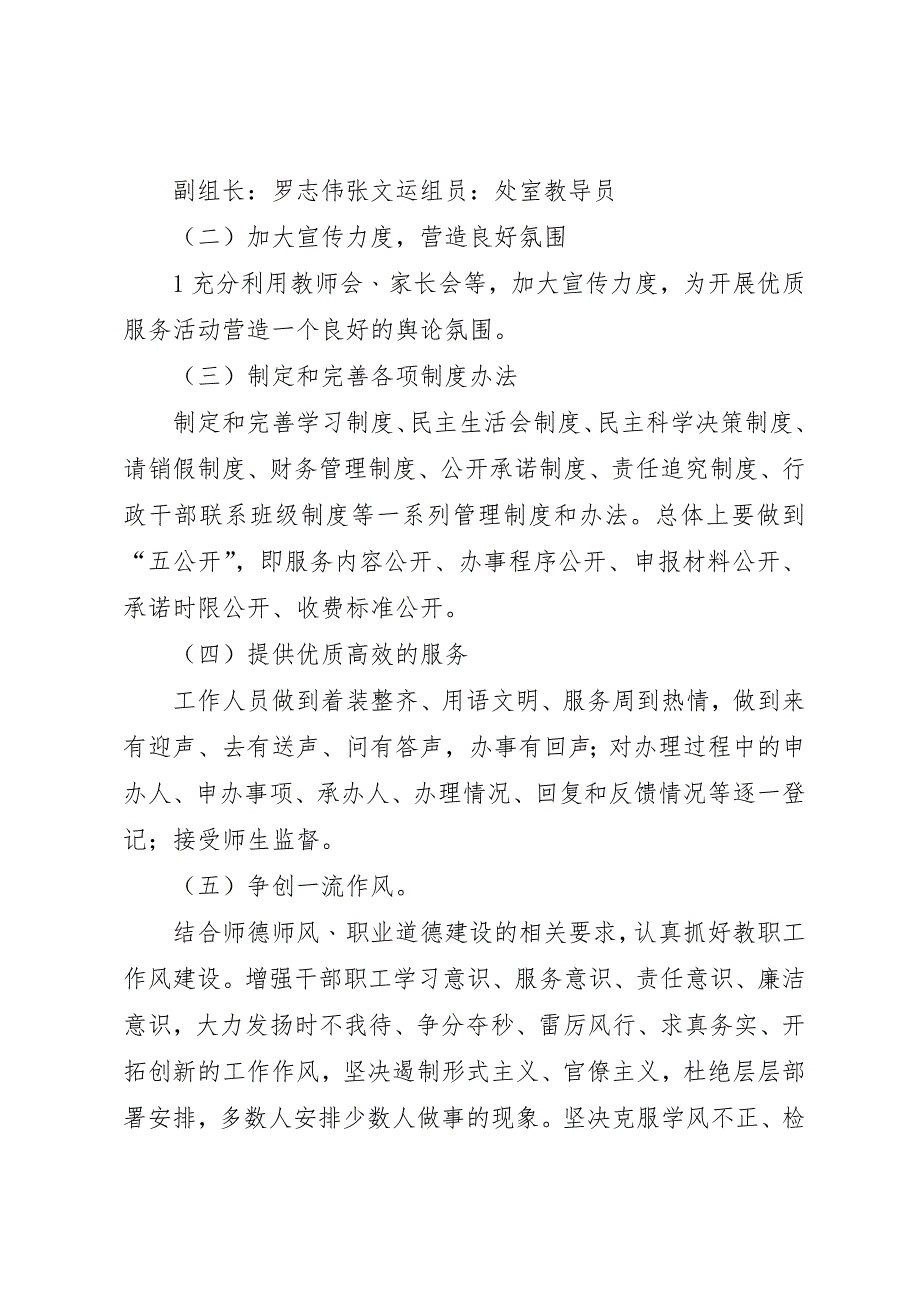 副组长：罗志伟张文运组员：处室教导员
（二）加大宣传力度，营造良好氛围
1 充分利用教师会、家长会等，加大宣传力度，为开展优质
服务活动营造一个良好的舆论氛围。
（三）制定和完善各项制度办法
制定和完善学习制度、民主生活会制度、民主科学决策制度、
请销假制度、财务管理制度、公开承诺制度、责任追究制度、行
政干部联系班级制度等一系列管理制度和办法。总体上要做到
“五公开”，即服务内容公开、办事程序公开、申报材料公开、
承诺时限公开、收费标准公开。
（四）提供优质高效的服务
工作人员做到着装整齐、用语文明、服务周到热情，做到来
有迎声、去有送声、问有答声，办事有回声；对办理过程中的申
办人、申办事项、承办人、办理情况、回复和反馈情况等逐一登
记；接受师生监督。
（五）争创一流作风。
结合师德师风、职业道德建设的相关要求，认真抓好教职工
作风建设。增强干部职工学习意识、服务意识、责任意识、廉洁
意识，大力发扬时不我待、争分夺秒、雷厉风行、求真务实、开
拓创新的工作作风，坚决遏制形式主义、官僚主义，杜绝层层部
署安排，多数人安排少数人做事的现象。坚决克服学风不正、检